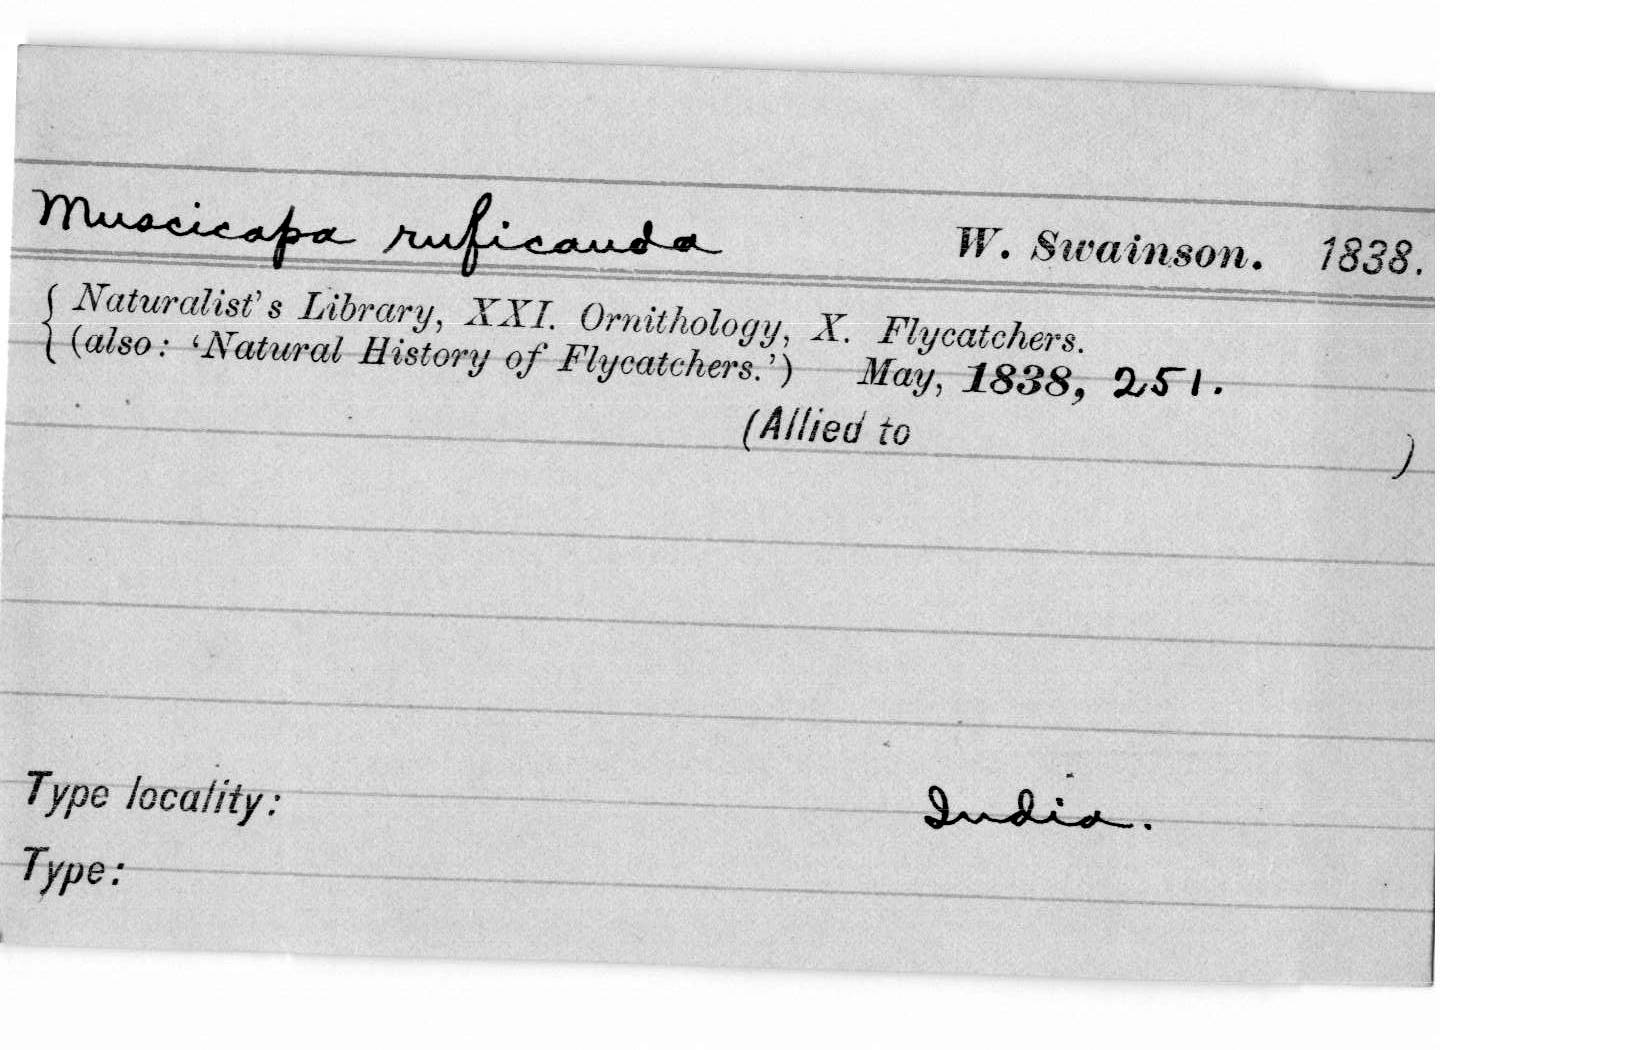 Muscicapa ruficauda W. Swainson. 1838.
{ Naturalist's Library, XXI. Ornithology, X. Flycatchers.
(also: 'Natural History of Flycatchers.') May, 1838, 251.
(Allied to )
Type locality: India.
Type: